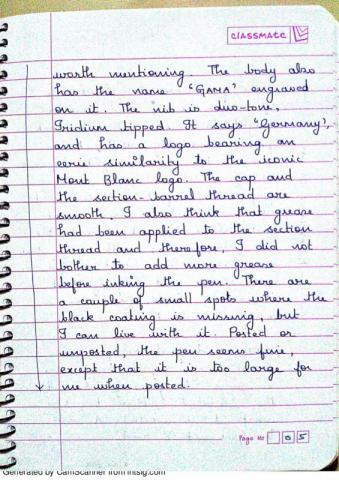 classmate
worth mentioning. The body also
has the name 'GAMA' engraved
on it. The nib is duo-tone,
Iridium tipped. It says 'Germany',
and has a logo bearing an
eerie similarity to the iconic
Mont Blanc logo. The cap and
the section-barrel thread are
smooth, I also think that grease
had been applied to the section
thread and therefore, I did not
bother to add more grease
before inking the pen. There are
a couple of small spots where the
black coating is missing, but
I can live with it. Posted or
unposted, the pen seems fine,
except that it is too large for
me when posted.
Page No 05
Generated by CamScanner from intsig.com